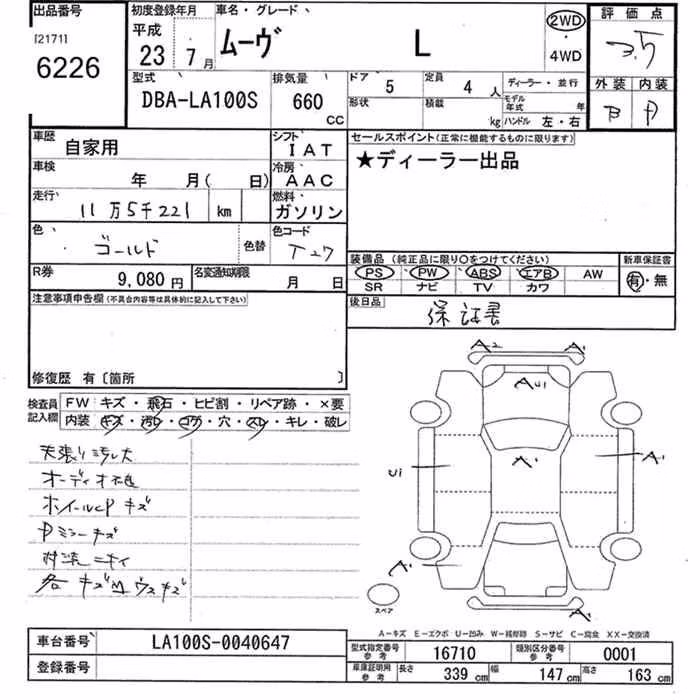 出品番号 初度登録年月 車名・グレード 2WD 評価点
[2171] 平成 ムーヴ L 3.5
6226 23年 7月 4WD
型式 排気量 ドア 5 定員 4人 ディーラー・並行 外装 内装
DBA-LA100S 660 形状 積載 モデル年式 年 B
CC kg ハンドル 左・右
車歴 自家用 シフト IAT セールスポイント(正常に機能するものに限ります)
車検 年 月( 日) 冷房 AAC ★ディーラー出品
走行 11万5千221 km 燃料 ガソリン
色 ゴールド 色替 色コード T27
装備品(純正品に限り○をつけてください) 新車保証書
R券 9,080円 名変通知期限 月 日 PS PW ABS エアB AW 有・無
SR ナビ TV カワ
注意事項申告欄(不具合内容等は具体的に記入して下さい) 後日品 保証書
修復歴 有〔箇所 〕
検査員記入欄 FW キズ・飛石・ヒビ割・リペア跡・×要
内装 キズ・汚れ・コゲ・穴・スレ・キレ・破レ
A2 A1
AU1
天張り汚れ大
オーディオ不良
ホイールCP キズ
U1 A1 A1
Pミラーキズ
内装ニオイ
各キズM ウスキズ
A1
スペア
A1
A-キズ E-エクボ U-凹み W-補修跡 S-サビ C-腐食 XX-交換済
車台番号 LA100S-0040647 型式指定番号 参考 16710 類別区分番号 参考 0001
登録番号 車庫証明用 参考 長さ 339cm 幅 147cm 高さ 163cm